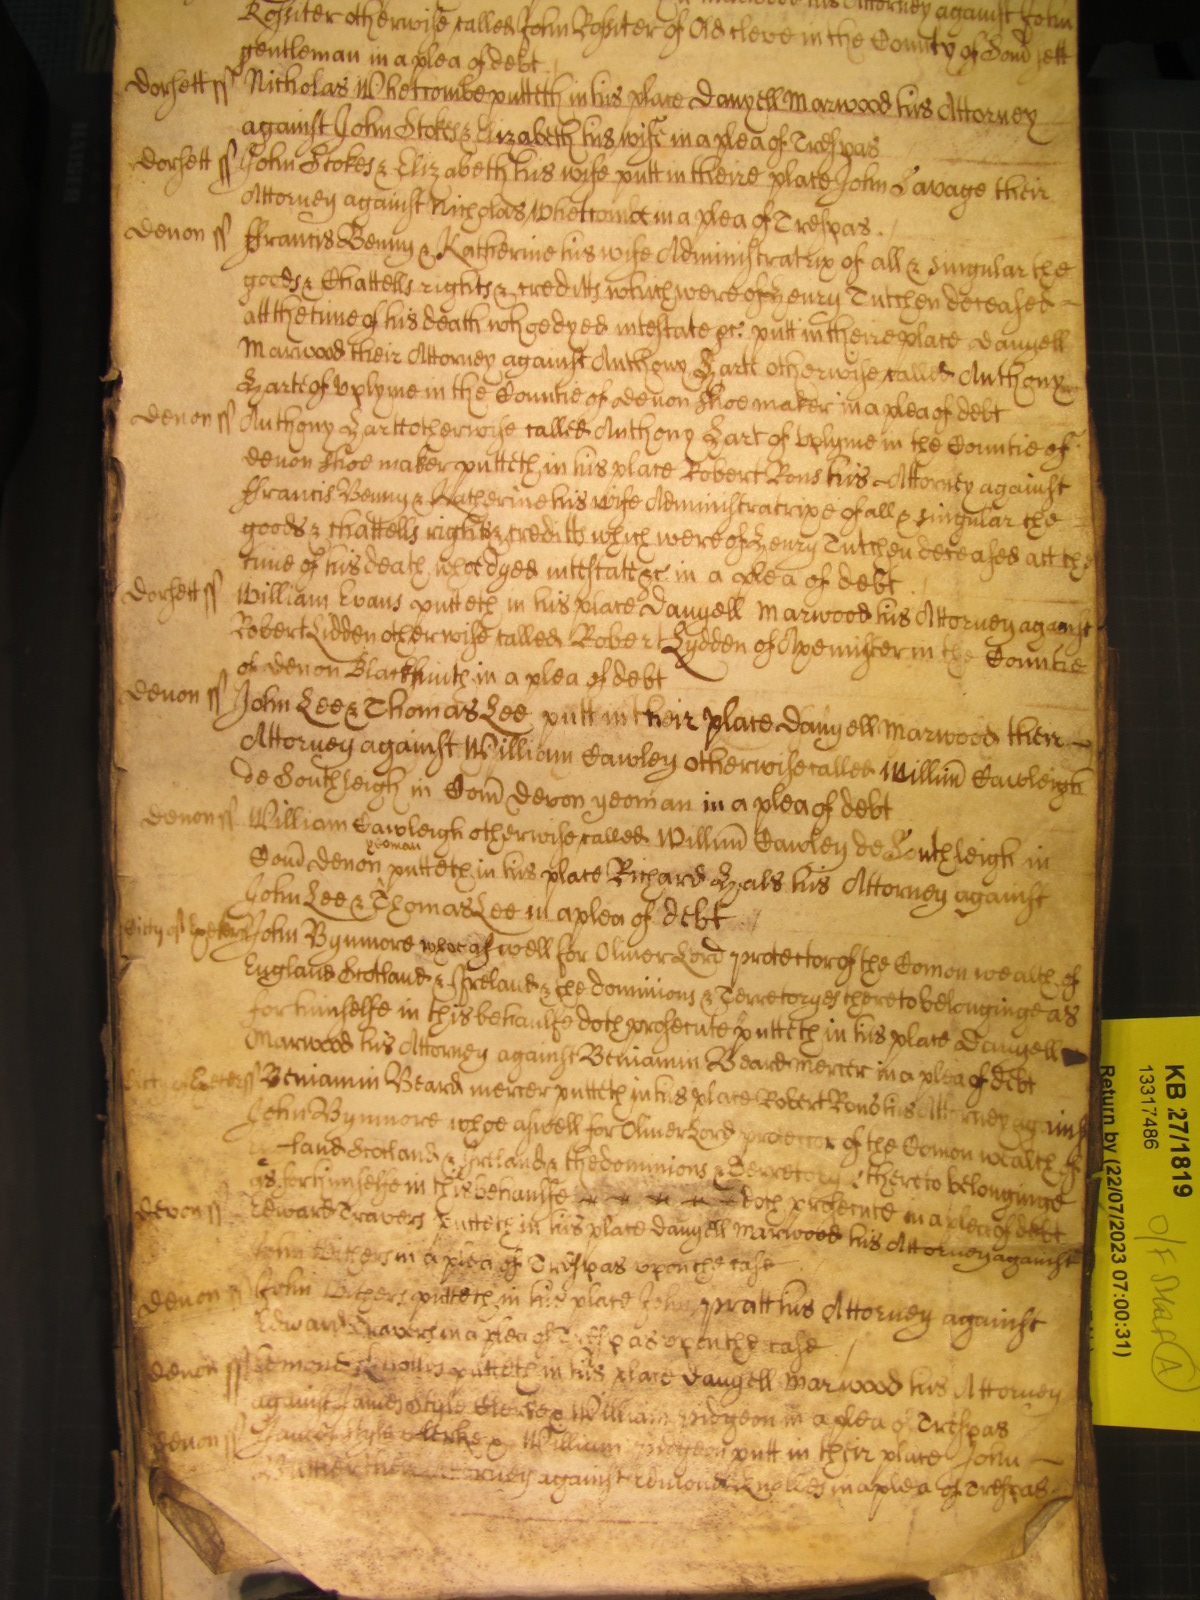 Marwood his Attorney against John
Rossiter otherwise called John Rossiter of Old cleve in the County of Som̃sett
gentleman in a plea of debt
Dorsett ss Nicholas Whetcombe putteth in his place Danyell Marwood his Attorney
against John Stokes & Elizabeth his wife in a plea of Trespas
Dorsett ss John Stokes & Elizabeth his wife putt in theire place John Savage their
Attorney against Nicholas Whetcombe in a plea of Trespas.
Devon ss ffrancis Benny & Katherine his wife Administratrix of all & singular the
goods & Chattells rights & creditts which were of Henry Tutchen deceased
att the time of his death who dyed intestate &c. putt in theire place Danyell
Marwood their Attorney against Anthony Hart otherwise called Anthony
Hart of Uplyme in the Countie of Devon Shoemaker in a plea of debt
Devon ss Anthony Hart otherwise called Anthony Hart of Uplyme in the Countie of
Devon Shoe maker putteth in his place Robert Rous his Attorney against
ffrancis Benny & Katherine his wife Administratrixe of all & singular the
goods & chattells rights & creditts which were of Henry Tutchen deceased att the
time of his death who dyed intestate &c in a plea of debt
Dorsett ss William Evans putteth in his place Danyell Marwood his Attorney against
Robert Lidden otherwise called Robert Lydden of Axemister in the Countie
of Devon Blacksmith in a plea of debt
Devon ss John Lee & Thomas Lee putt in their place Danyell Marwood their
Attorney against William Cawley otherwise called Willim̃ Cawleigh
de Southleigh in Com̃ Devon yeoman in a plea of debt
Devon ss William Cawleigh otherwise called Willim̃ Cawley de Southleigh in
Com̃ Devon yeoman putteth in his place Richard Hals his Attorney against
John Lee & Thomas Lee in a plea of debt
Citty of Exeter John Bynmore whoe aswell for Oliver Lord protector of the Comon wealth of
England Scotland & Ireland & the dominions & Terretoryes thereto belonginge as
for himselfe in this behaulfe doth prosecute putteth in his place Danyell
Marwood his Attorney against Beniamin Beard mercer in a plea of debt
Exeter ss Beniamin Beard mercer putteth in his place Robert Rous his Attorney against
John Bynmore whoe aswell for Oliver Lord protector of the Comon wealth of
England Scotland & Ireland & the dominions & Terretoryes thereto belonginge
as for himselfe in this behaulfe doth prosecute in a plea of debt
Devon ss Edward Travers putteth in his place Danyell Marwood his Attorney against
John Withers in a plea of Trespas upon the case
Devon ss John Withers putteth in his place John Pratt his Attorney against
Edward Travers in a plea of Trespas upon the case
Devon ss Edmond putteth in his place Danyell Marwood his Attorney
against James Style Clerke & William Pidgeon in a plea of Trespas
Devon ss James Style Clerke & William Pidgeon putt in their place John
Attorney against Edmond in a plea of Trespas
KB 27/1819
13317486
Return by (22/07/2023 07:00:31)
O/F
A